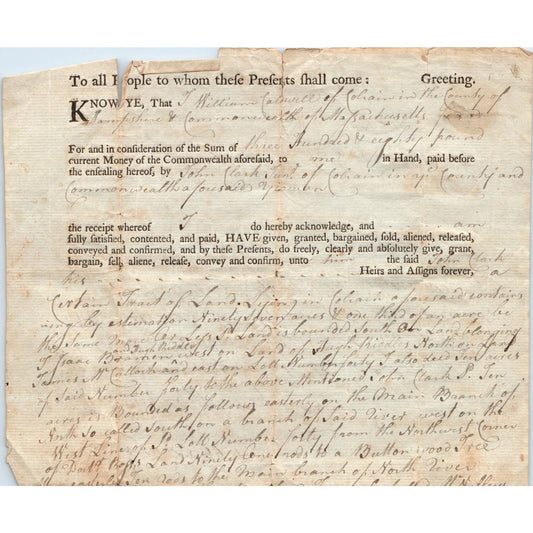 To all People to whom theſe Preſents ſhall come: Greeting.
KNOW YE, That I William Caldwell of Colrain in the County of
Hampshire & Commonwealth of Massachusetts
For and in conſideration of the Sum of three Hundred & eighty pound
current Money of the Commonwealth aforeſaid, to me in Hand, paid before
the enſealing hereof, by John Clark of Colrain in County and
Commonwealth aforesaid
the receipt whereof I do hereby acknowledge, and am
fully ſatisfied, contented, and paid, HAVE given, granted, bargained, ſold, aliened, releaſed,
conveyed and confirmed, and by theſe Preſents, do freely, clearly and abſolutely give, grant,
bargain, ſell, aliene, releaſe, convey and confirm, unto him the ſaid John Clark
his Heirs and Aſſigns forever, a
Certain Tract of Land Lying in Colrain aforesaid contains
ing by estimation Ninety Seven acres & one third of an acre be
the Same more or Less Land is bounded South on Land belonging
to Isaac and Hugh Riddle west on Land of Hugh Riddle North on Land
James McCulloch and east on Lott Number forty I also deed Ten acres
of Said Number forty to the above Mentioned John Clark Ten
acres is Bounded as follows easterly on the Main Branch of
North So called South on a branch of Said River west on the
West Line of Lott Number forty from the Northwest Corner
of Land Ninety one rods to a Button wood Tree
rods to the Main branch of North River